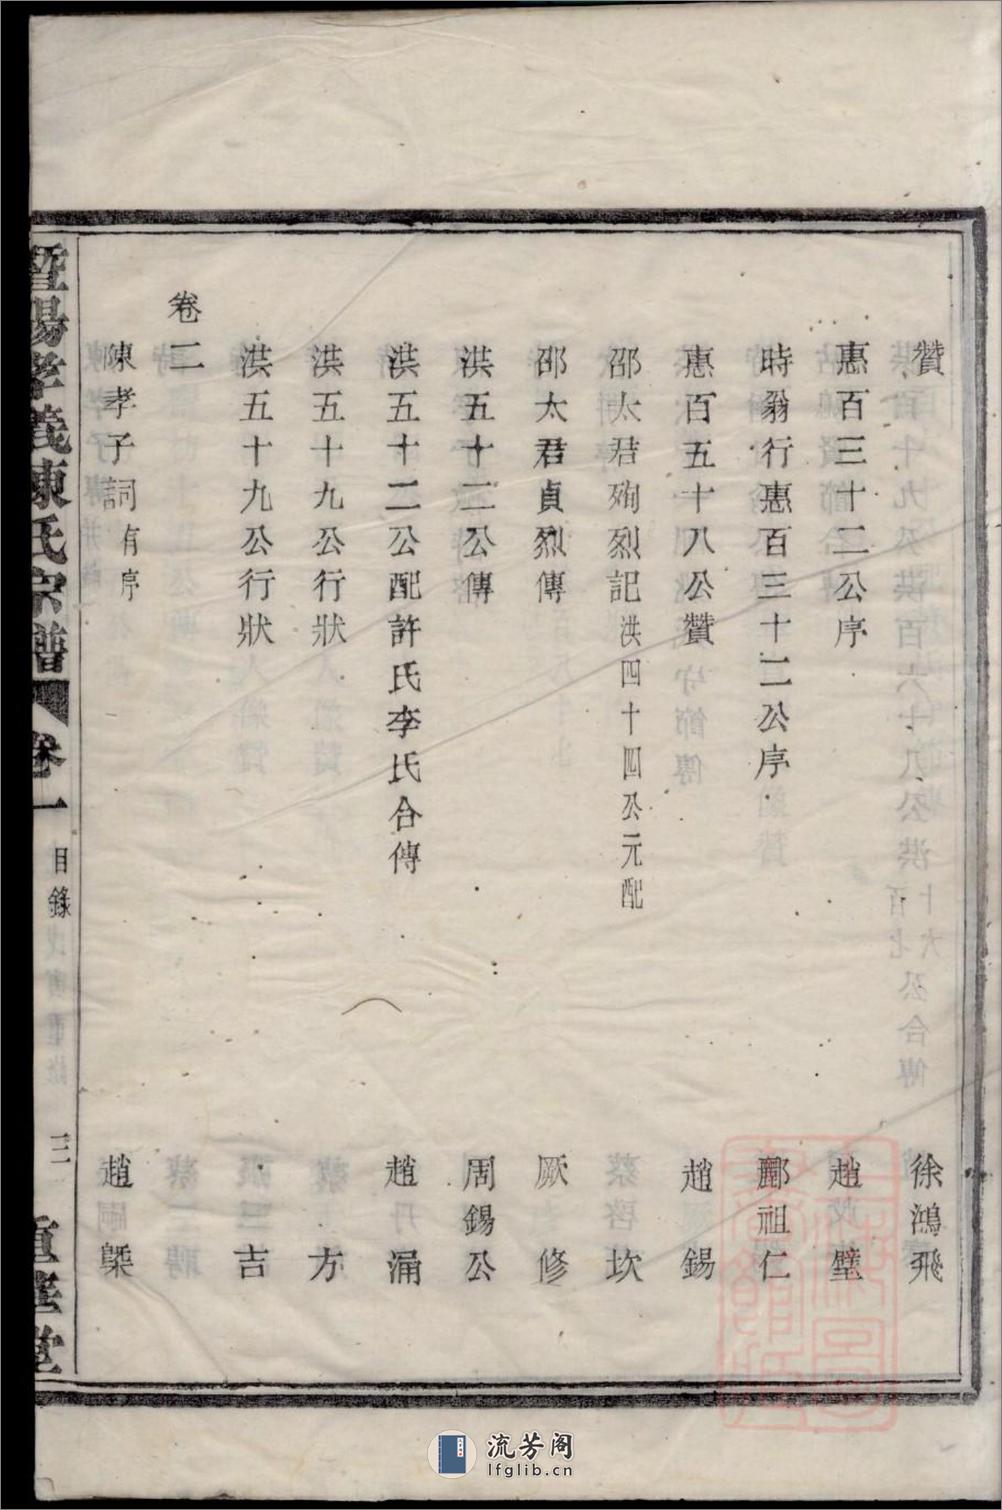 贊　徐鴻飛
惠百三十二公序　趙壁
時翁行惠百三十二公序　酈祖仁
惠百五十八公贊　趙錫
邵太君殉烈記洪四十四公元配　坎
邵太君貞烈傳　厥修
洪五十二公傳　周錫公
洪五十二公配許氏李氏合傳　趙涌
洪五十九公行狀　方
洪五十九公行狀　吉
卷二
陳孝子詞有序　趙槩
暨陽孝義陳氏宗譜　卷一　目錄　三　重華堂
流芳阁
lfglib.cn